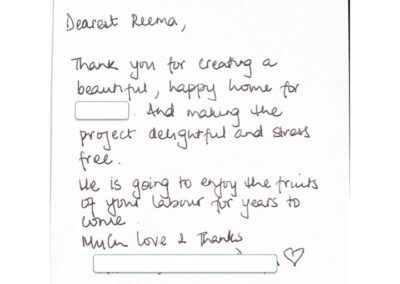 Dearest Reema,
Thank you for creating a
beautiful, happy home for
. And making the
project delightful and stress
free.
He is going to enjoy the fruits
of your labour for years to
come.
Much Love & Thanks